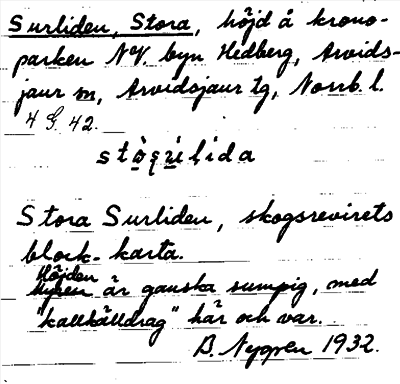 Surliden, Stora, höjd å krono-
parken NV. byn Hedberg, Arvids-
jaur sn, Arvidsjaur tg, Norrb. l.
4 G. 42.
Stora Surliden, skogsrevirets
block-karta.
Höjden
är ganska sumpig, med
"kallkälldrag" här och var.
B. Nygren 1932.